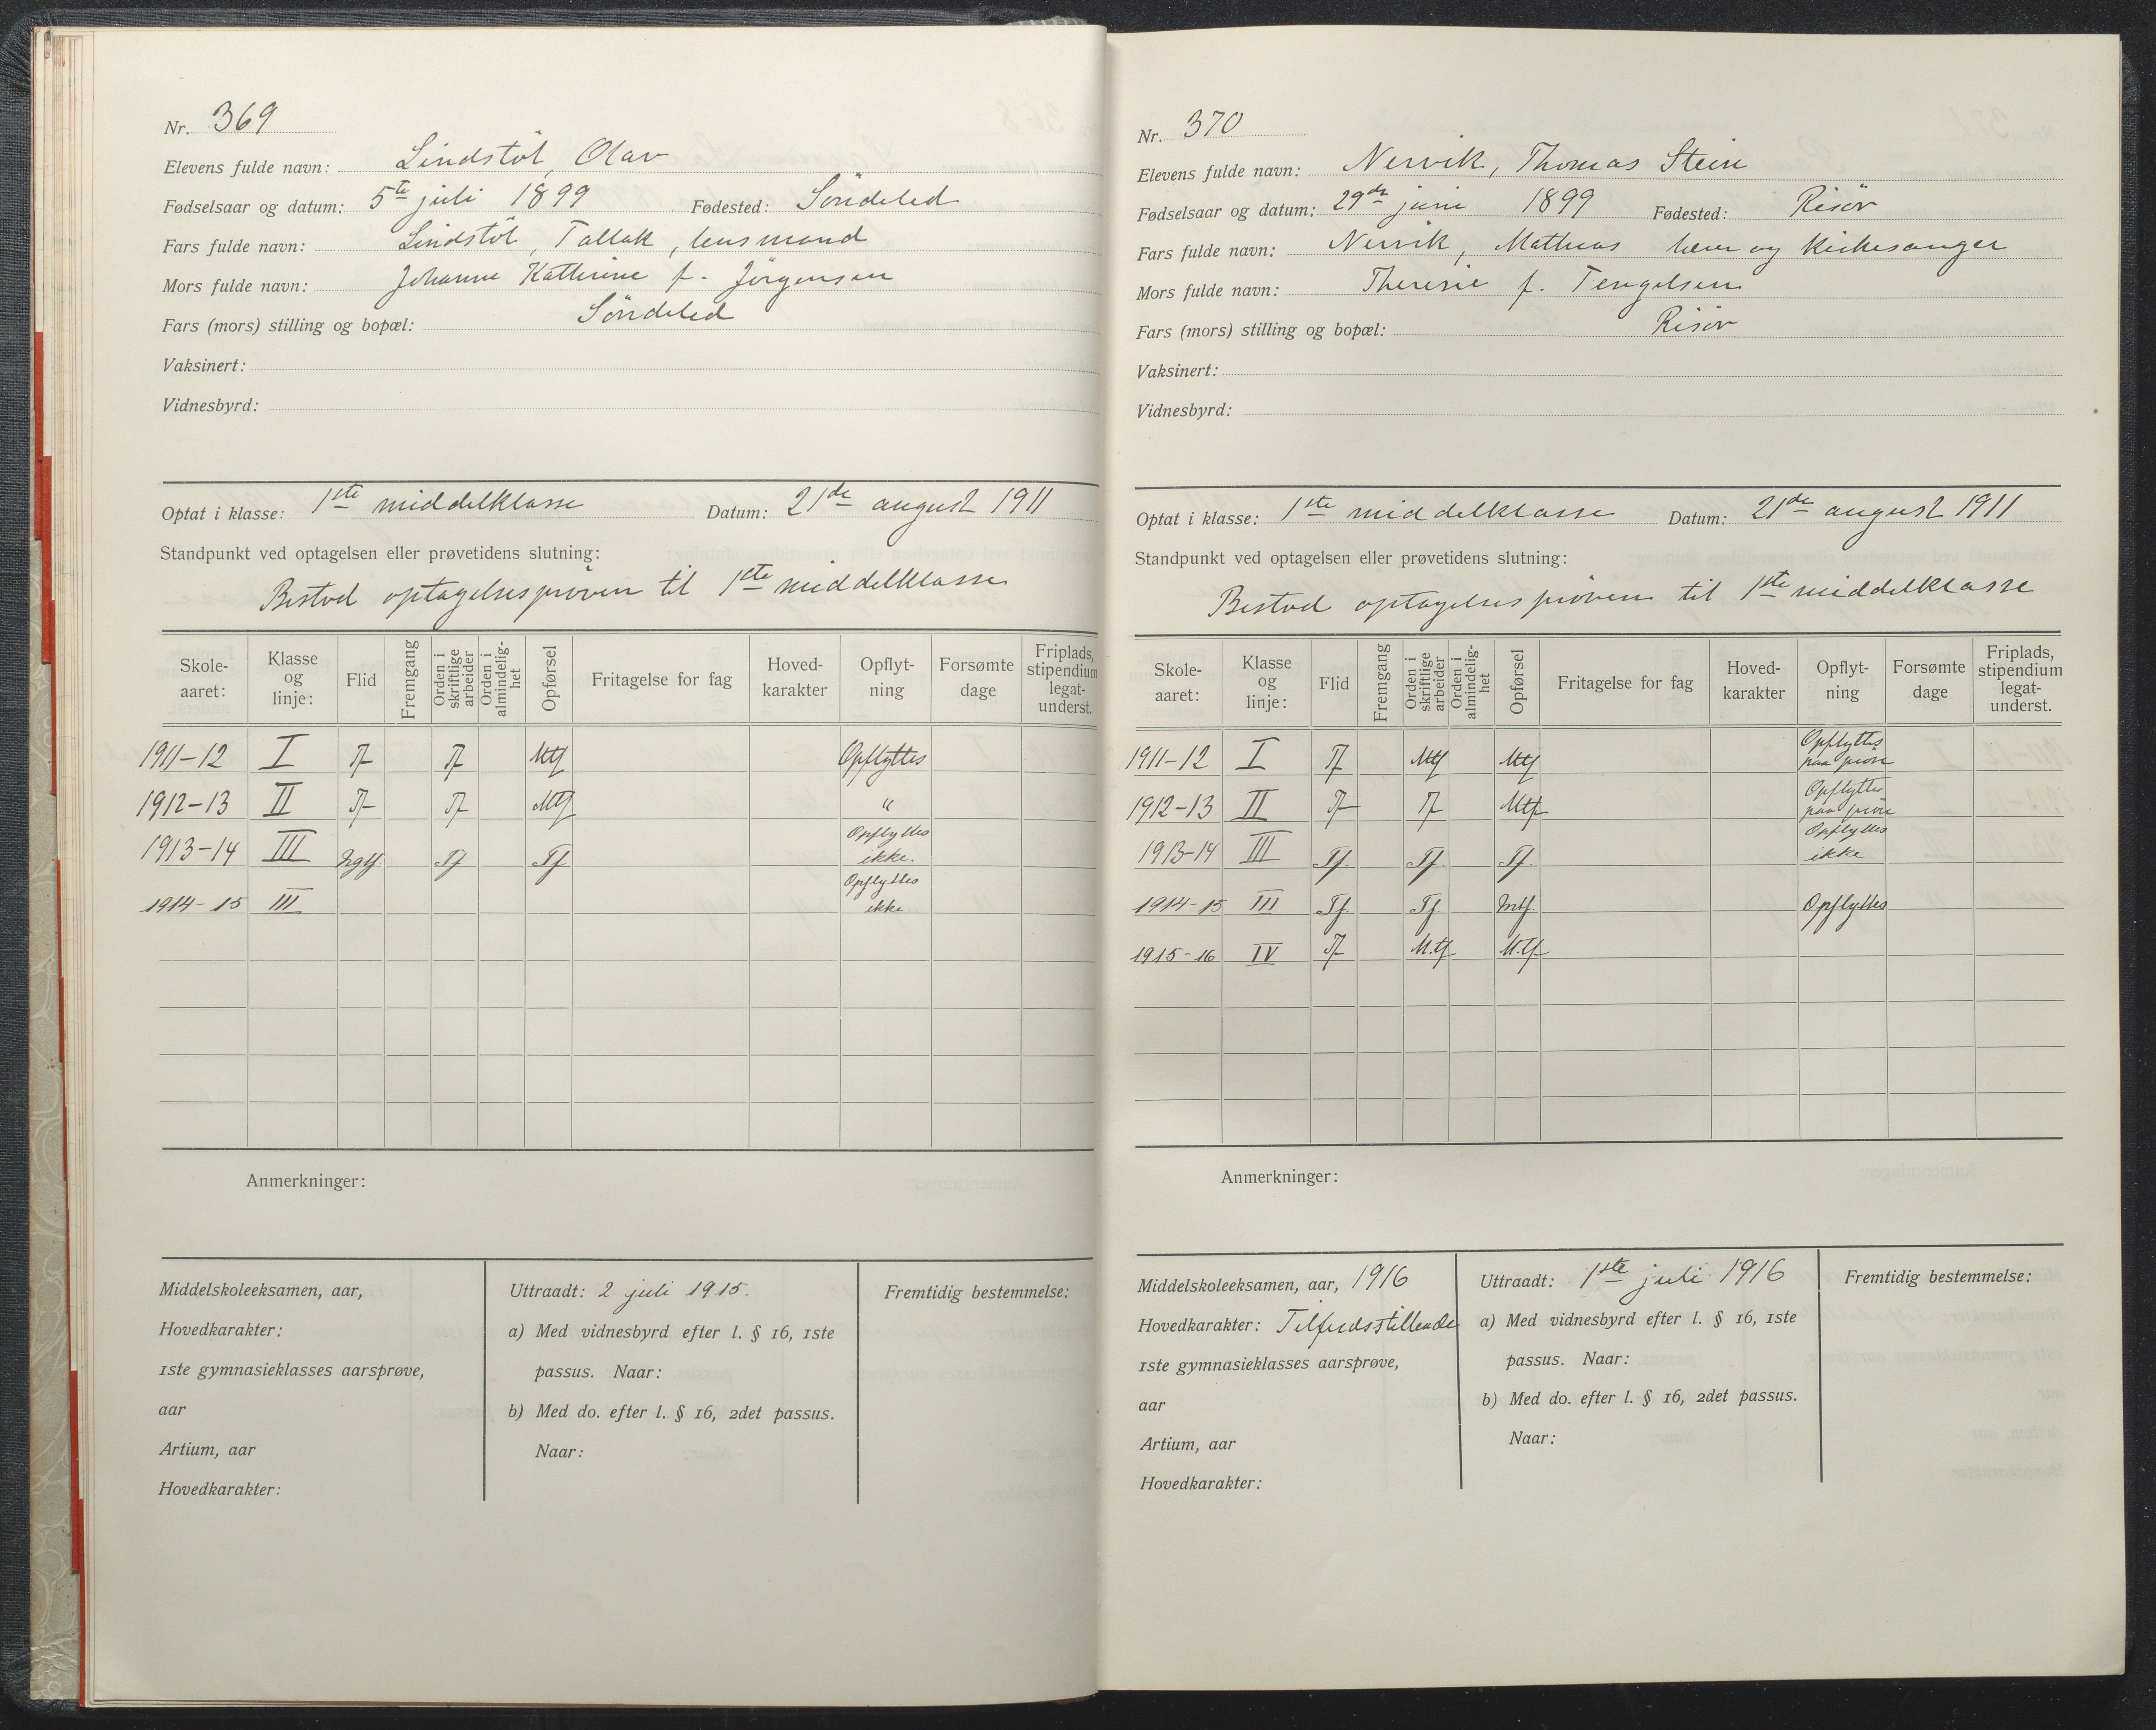 Nr. 369
Elevens fulde navn: Lindstöl, Olav
Fødselsaar og datum: 5te juli 1899 Fødested: Söndeled
Fars fulde navn: Lindstöl, Tallak, lensmand
Mors fulde navn: Johanne Kathrine f. Jörgensen
Fars (mors) stilling og bopæl: Söndeled
Vaksinert:
Vidnesbyrd:
Optat i klasse: 1ste middelklasse Datum: 21de august 1911
Standpunkt ved optagelsen eller prøvetidens slutning:
Bestod optagelsespröven til 1ste middelklasse
Skole-aaret: Klasse og linje: Flid Fremgang Orden i skriftlige arbeider Orden i almindelig-het Opførsel Fritagelse for fag Hoved-karakter Opflyt-ning Forsømte dage Friplads, stipendium legat-underst.
1911-12 I Tf Tf Mtf Opflyttes
1912-13 II Tf Tf Mtf "
1913-14 III Ngtf Tf Tf Opflyttes ikke.
1914-15 III Opflyttes ikke.
Anmerkninger:
Middelskoleeksamen, aar,
Hovedkarakter:
1ste gymnasieklasses aarsprøve,
aar
Artium, aar
Hovedkarakter:
Uttraadt: 2 juli 1915.
a) Med vidnesbyrd efter l. § 16, 1ste
passus. Naar:
b) Med do. efter l. § 16, 2det passus.
Naar:
Fremtidig bestemmelse:
Nr. 370
Elevens fulde navn: Nervik, Thomas Stein
Fødselsaar og datum: 29de juni 1899 Fødested: Risör
Fars fulde navn: Nervik, Mathias lærer og kirkesanger
Mors fulde navn: Therese f. Tengelsen
Fars (mors) stilling og bopæl: Risör
Vaksinert:
Vidnesbyrd:
Optat i klasse: 1ste middelklasse Datum: 21de august 1911
Standpunkt ved optagelsen eller prøvetidens slutning:
Bestod optagelsespröven til 1ste middelklasse
Skole-aaret: Klasse og linje: Flid Fremgang Orden i skriftlige arbeider Orden i almindelig-het Opførsel Fritagelse for fag Hoved-karakter Opflyt-ning Forsømte dage Friplads, stipendium legat-underst.
1911-12 I Tf Mtf Mtf Opflyttes paa pröve
1912-13 II Tf Tf Mtf Opflyttes paa pröve
1913-14 III Tf. Tf. Tf. Opflyttes ikke
1914-15 III Tf. Tf. Mtf. Opflyttes
1915-16 IV Tf M.tf M.tf
Anmerkninger:
Middelskoleeksamen, aar, 1916
Hovedkarakter: Tilfredsstillende
1ste gymnasieklasses aarsprøve,
aar
Artium, aar
Hovedkarakter:
Uttraadt: 1ste juli 1916
a) Med vidnesbyrd efter l. § 16, 1ste
passus. Naar:
b) Med do. efter l. § 16, 2det passus.
Naar:
Fremtidig bestemmelse: